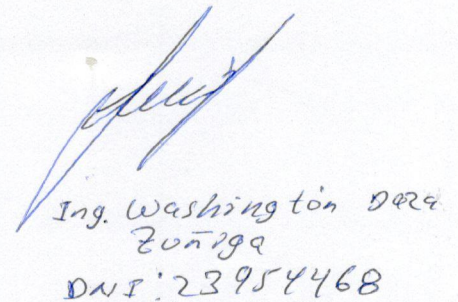 Ing. Washingtón Daza
Zuñiga
DNI: 23954468